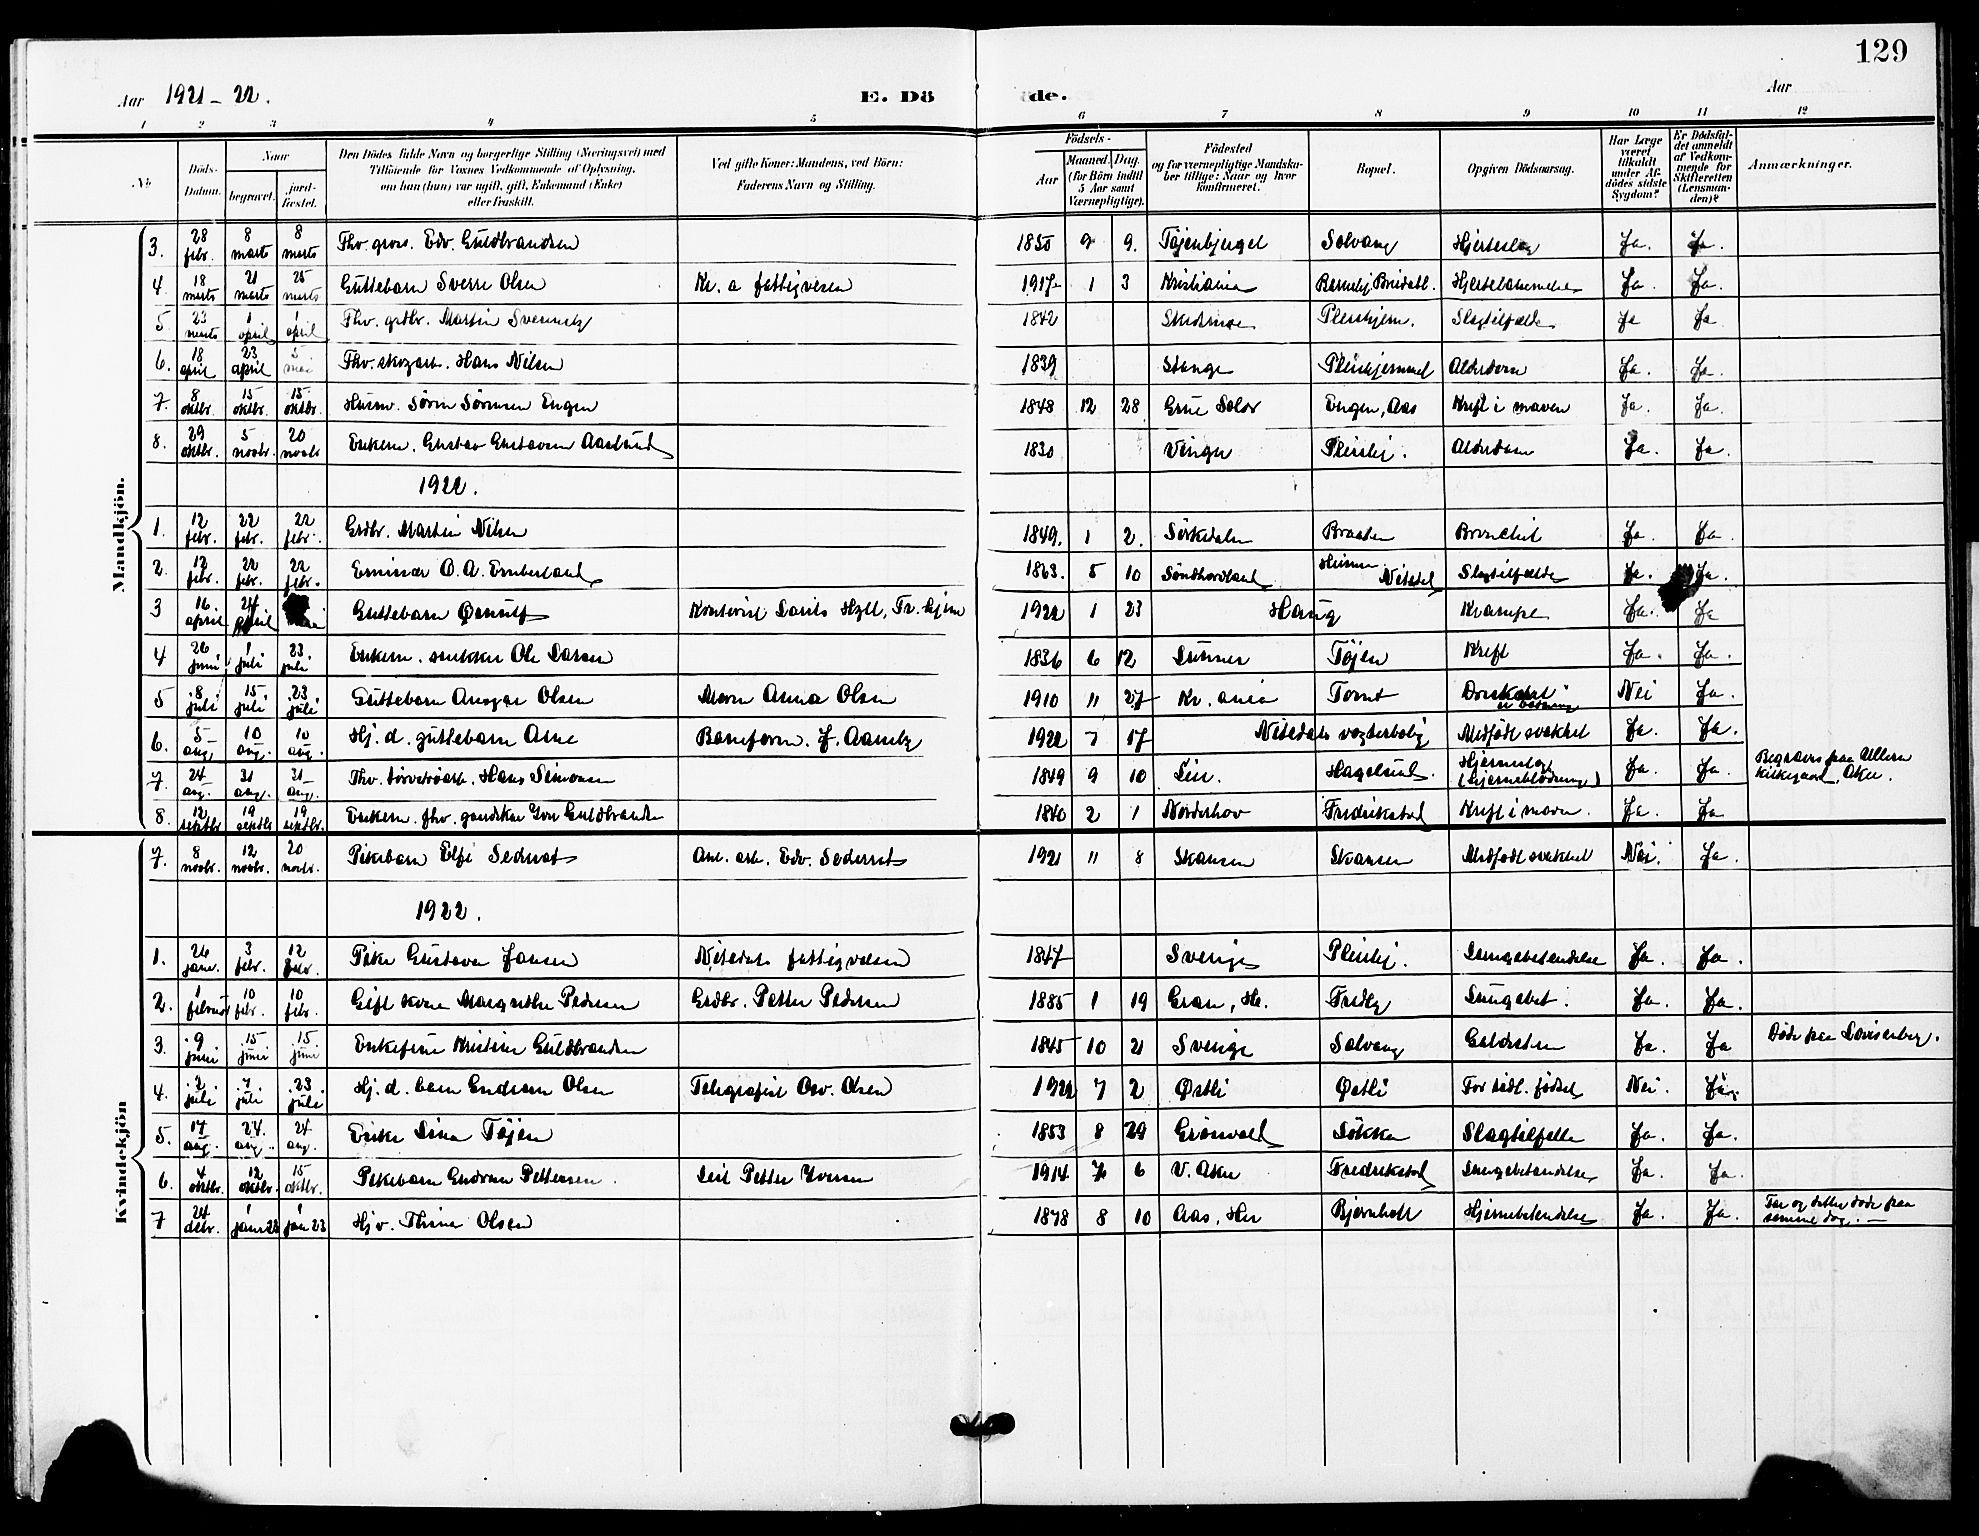 129
Aar 1921-22. E. Dö de. Aar
1 2 3 4 5 6 7 8 9 10 11 12
No. Döds-Datum. Naar begravet. jordfæstet. Den Dödes fulde Navn og borgerlige Stilling (Næringsvei) med Tilföiende for Voxnes Vedkommende af Oplysning, om han (hun) var ugift, gift, Enkemand (Enke) eller fraskilt. Ved gifte Koner: Mandens, ved Börn: Faderens Navn og Stilling. Födsels- Aar Maaned. Dag. (for Börn indtil 5 Aar samt Værnepligtige). Födested og for værnepligtige Mandskaber tillige: Naar og hvor konfirmeret. Bopæl. Opgiven Dödsaarsag. Har Læge været tilkaldt under Afdödes sidste Sygdom? Er Dödsfaldet anmeldt af Vedkommende for Skifteretten (Lensmanden)? Anmærkninger.
Mandkjön.
3. 28 febr. 8 marts 8 marts Fhv. gross. Edv. Guldbrandsen 1850 9 9. Tøjenbjerget Solvang Hjerteslag Ja. Ja.
4 18 marts 21 marts 25 marts Guttebarn Sverre Olsen Kr.a fattigvesen 1917 1 3 Kristiania Ja. Ja.
5. 23 marts 1 april 1 april Fhv. grdbr. Martin 1842 Pleiehjem. Slagtilfælde Ja Ja
6. 18 april 23 april 5 mai Fhv. skogarb. Hans Nilsen 1839 Stange Pleiehjemmet Alderdom Ja. Ja.
7. 8 oktbr. 15 oktbr. 15 oktbr. Husm. Søren Sørensen Engen 1848 12 28 Grue Solør Engen, Aas Kreft i maven Ja. Ja.
8. 29 oktbr. 5 novbr. 20 novbr Enkem. Gustav Gustavsen Aaslund 1830 Vinger Pleiehj. Alderdom Ja. Ja.
1922.
1. 12 febr. 22 febr. 22 febr. Grdbr. Martin Nilsen 1849. 1 2. Sørkedalen Braaten Bronchit Ja. Ja.
2. 12 febr. 22 febr. 22 febr. Emissær O. A. Emberland 1863. 5 10 Søndhordland Nitedal Slagtilfælde Ja. Ja.
3 16 april 24 april Guttebarn Ørnulf Kontorist Laurits Hyll, Fr. hjem 1922 1 23 Haug Krampe Ja. Ja
4 26 juni 1 juli 23. juli Enkem. snekker Ole Larsen 1836 6 12 Lunner Tøjen Kreft Ja. Ja.
5 8 juli 15 juli 23 juli Guttebarn Ansgar Olsen Moren Anna Olsen 1910 11 27 Kr.ania Nei Ja.
6. 5 aug 10 aug. 10 aug. Hj. d. guttebarn Arne Barnefaren. J. 1922 7 17 Nitedals vogterbolig Medfødt svakhet Ja. Ja.
7. 24 aug. 31 aug. 31 aug. Fhv. Hans Simonsen 1849 9 10 Lier. Hagelund. (hjerneblødning) Ja. Ja. Begraves paa Ullern kirkegaard, Aker.
8. 12 septbr. 19 septbr 19 septbr. Enkem. fhv. gaardskar Iver Guldbrandsen 1840 2 1 Norderhov Fredrikstad Kreft i maven. Ja. Ja.
Kvindekjön
7. 8 novbr. 12 novbr. 20 novbr. Pikebarn Elfi Sederqvist Anl. arb. Edv. Sederqvist 1921 11 8 Skansen Skansen Medfødt svakhet Nei. Ja.
1922.
1. 26 janr. 3 febr. 12 febr. Pike Gustava Jansen Nitedals fattigvesen 1847 Sverige Pleiehj. Lungebetændelse Ja. Ja.
2. 1 februar 10 febr. 10 febr. Gift kone Margrethe Pedersen Grdbr. Petter Pedersen 1885 1 19 Gran, Had. Fredly Lungebet. Ja. Ja.
3. 9 juni 15 juni 15. juni Enkefrue Kristine Guldbrandsen 1845 10 21 Sverige Solvang Galdesten Ja. Ja Døde paa Lovisenberg.
4. 2 juli 7 juli 23 juli Hj. d. barn Gudrun Olsen Telegrafist Osv. Olsen 1922 7 2 Østli Østli For tidl. fødsel Nei. Ja.
5. 17 aug. 24. aug. 24 aug. Enke Lina Tøjen 1853 8 29 Grønvold Løkken Slagtilfelle Ja. Ja.
6. 4 oktbr. 12 oktbr. 15 oktbr. Pikebarn Gudrun Pettersen Petter Iversen 1914 7 6 V. Aker Fredrikstad Lungebetændelse Ja. Ja.
7 24 debr. 1 janr 23 1 jan 23 Hjv. Thina Olsen 1878 8 10 Aas, Bjørnholt Hjernebetendelse Ja. Ja. Far og datter døde paa samme dag. —